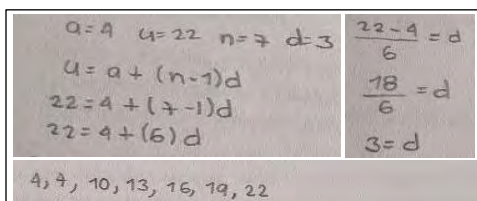 a=4 u=22 n=7 d=3
u=a+(n-1)d
22=4+(7-1)d
22=4+(6)d
22-4/6=d
18/6=d
3=d
4,7,10,13,16,19,22